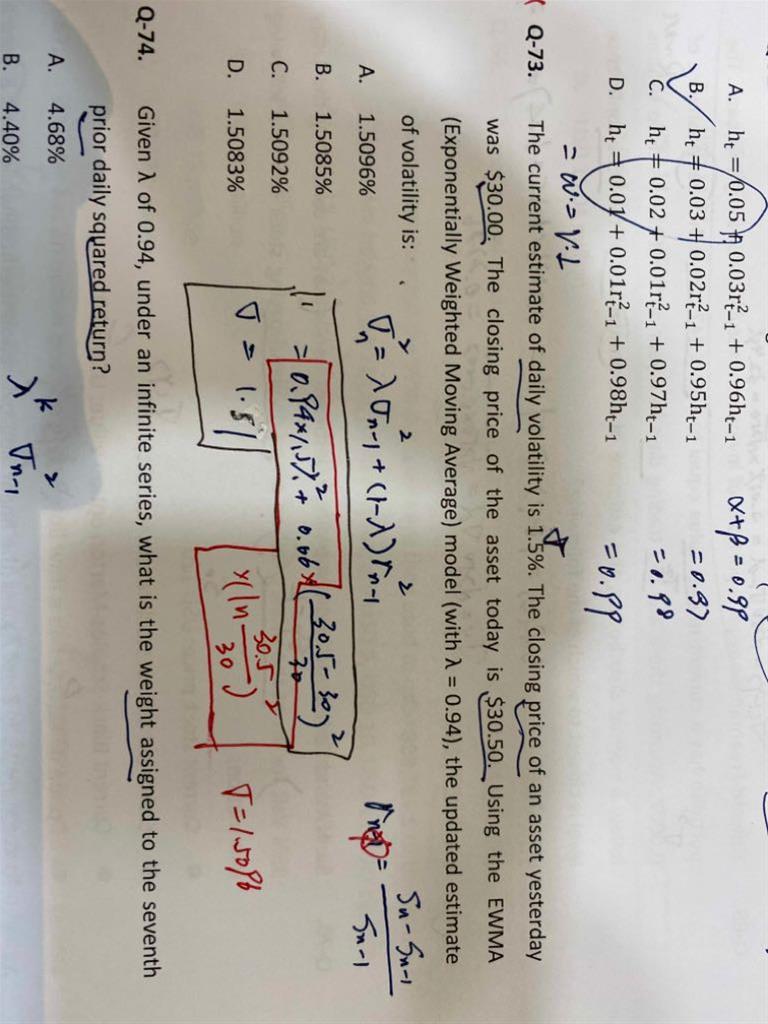 A. hₜ = 0.05 + 0.03r²ₜ₋₁ + 0.96hₜ₋₁ α+β = 0.99
B. hₜ = 0.03 + 0.02r²ₜ₋₁ + 0.95hₜ₋₁ = 0.97
C. hₜ = 0.02 + 0.01r²ₜ₋₁ + 0.97hₜ₋₁ = 0.98
D. hₜ = 0.01 + 0.01r²ₜ₋₁ + 0.98hₜ₋₁ = 0.99
Q-73. The current estimate of daily volatility is 1.5%. The closing price of an asset yesterday
was $30.00. The closing price of the asset today is $30.50. Using the EWMA
(Exponentially Weighted Moving Average) model (with λ = 0.94), the updated estimate
of volatility is:
σₙ² = λσ²ₙ₋₁ + (1-λ)r²ₙ₋₁
= (Sₙ - Sₙ₋₁)/Sₙ₋₁
A. 1.5096%
B. 1.5085%
C. 1.5092%
D. 1.5083%
= 0.94×1.5%² + 0.06×((30.5-30)/30)²
×(ln 30.5/30)²
σ = 1.51
σ=1.5096
Q-74. Given λ of 0.94, under an infinite series, what is the weight assigned to the seventh
prior daily squared return?
A. 4.68%
B. 4.40%
λᵏ σ²ₙ₋₁